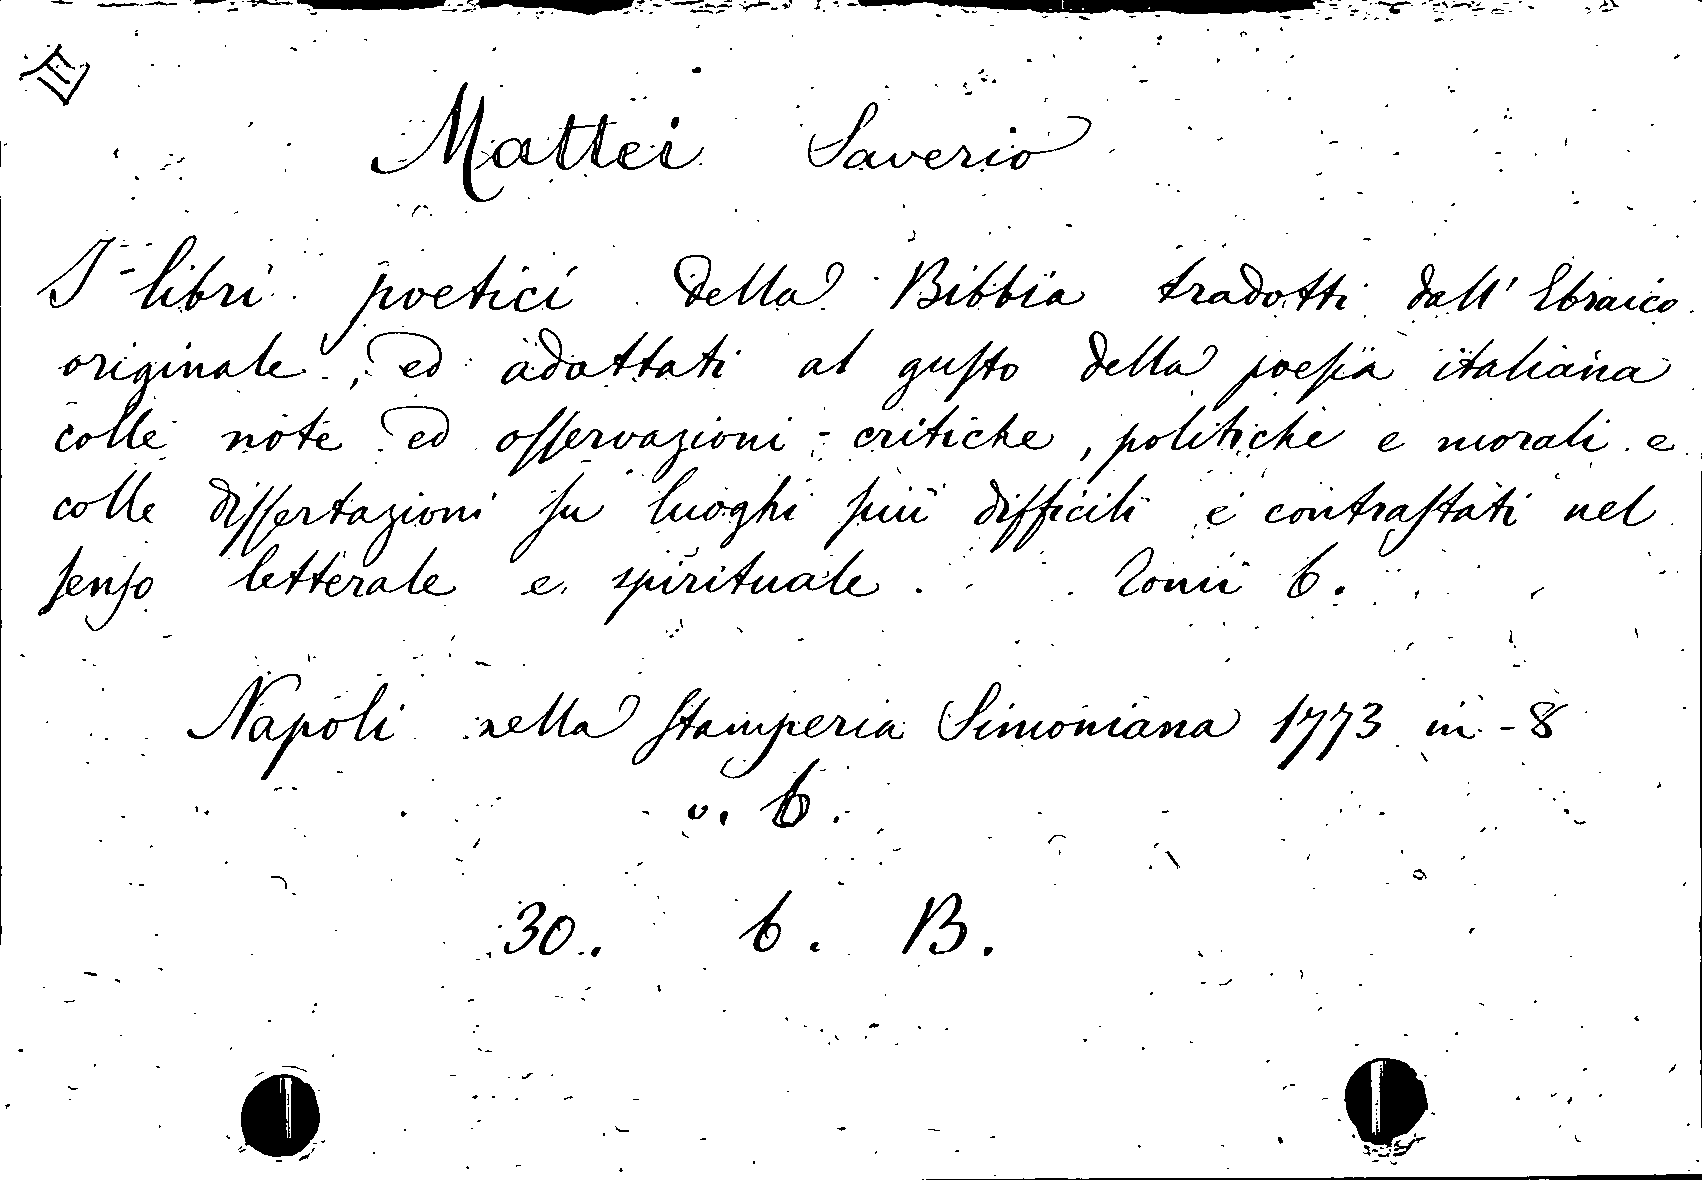 Mattei Saverio
I libri poetici della Bibbia tradotti dall' Ebraico
originale, ed adattati al guſto della poeſia italiana
colle note ed oſſervazioni critiche, politiche e morali e
colle diſſertazioni ſu luoghi più difficili e contraſtati nel
ſenſo letterale e spirituale. Tomi 6.
Napoli nella ſtamperia Simoniana 1773 in-8
v. 6.
30. 6. B.